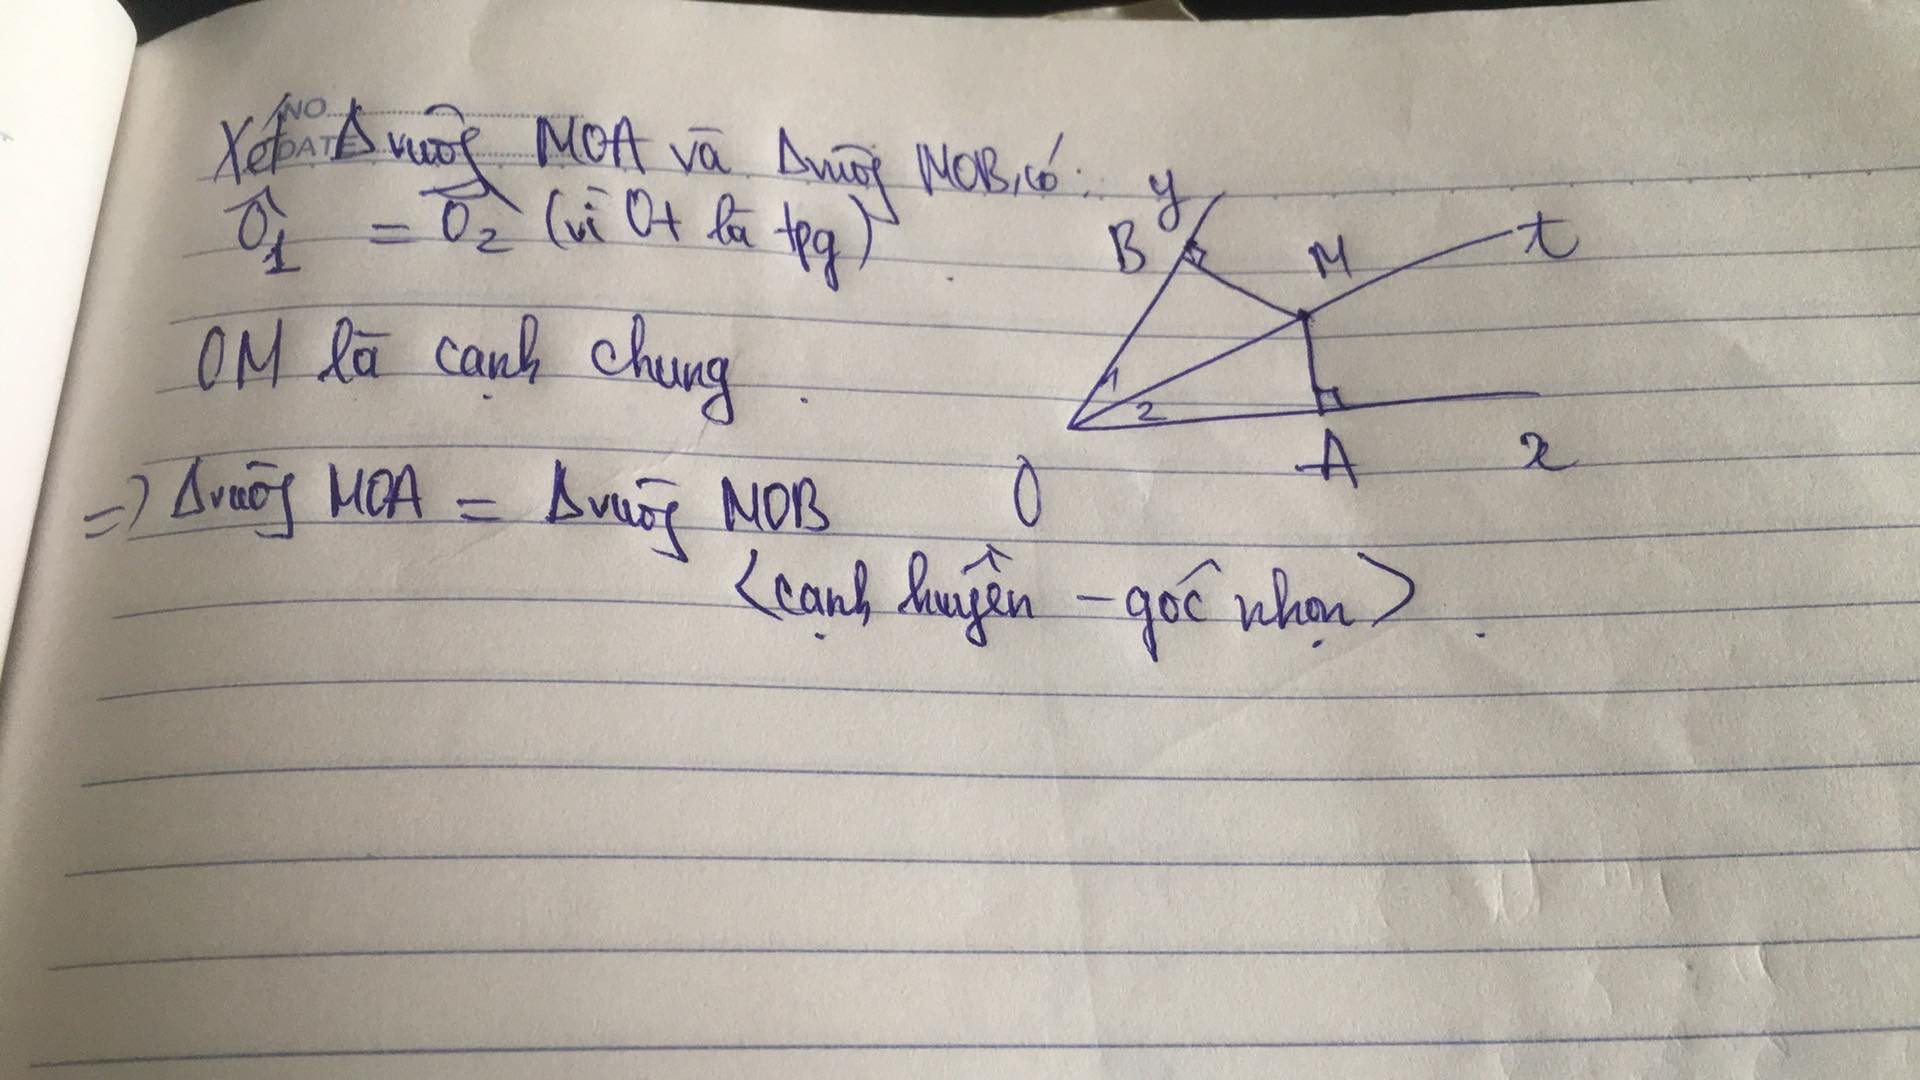 NO
DATE
Xét Δvuôg MOA và Δvuôg MOB, có:
Ô1 = Ô2 (vì Ot là tpg)
OM là cạnh chung.
=> Δvuôg MOA = Δvuôg MOB
<cạnh huyền - góc nhọn>.
y
B
M
t
1
2
A
x
O